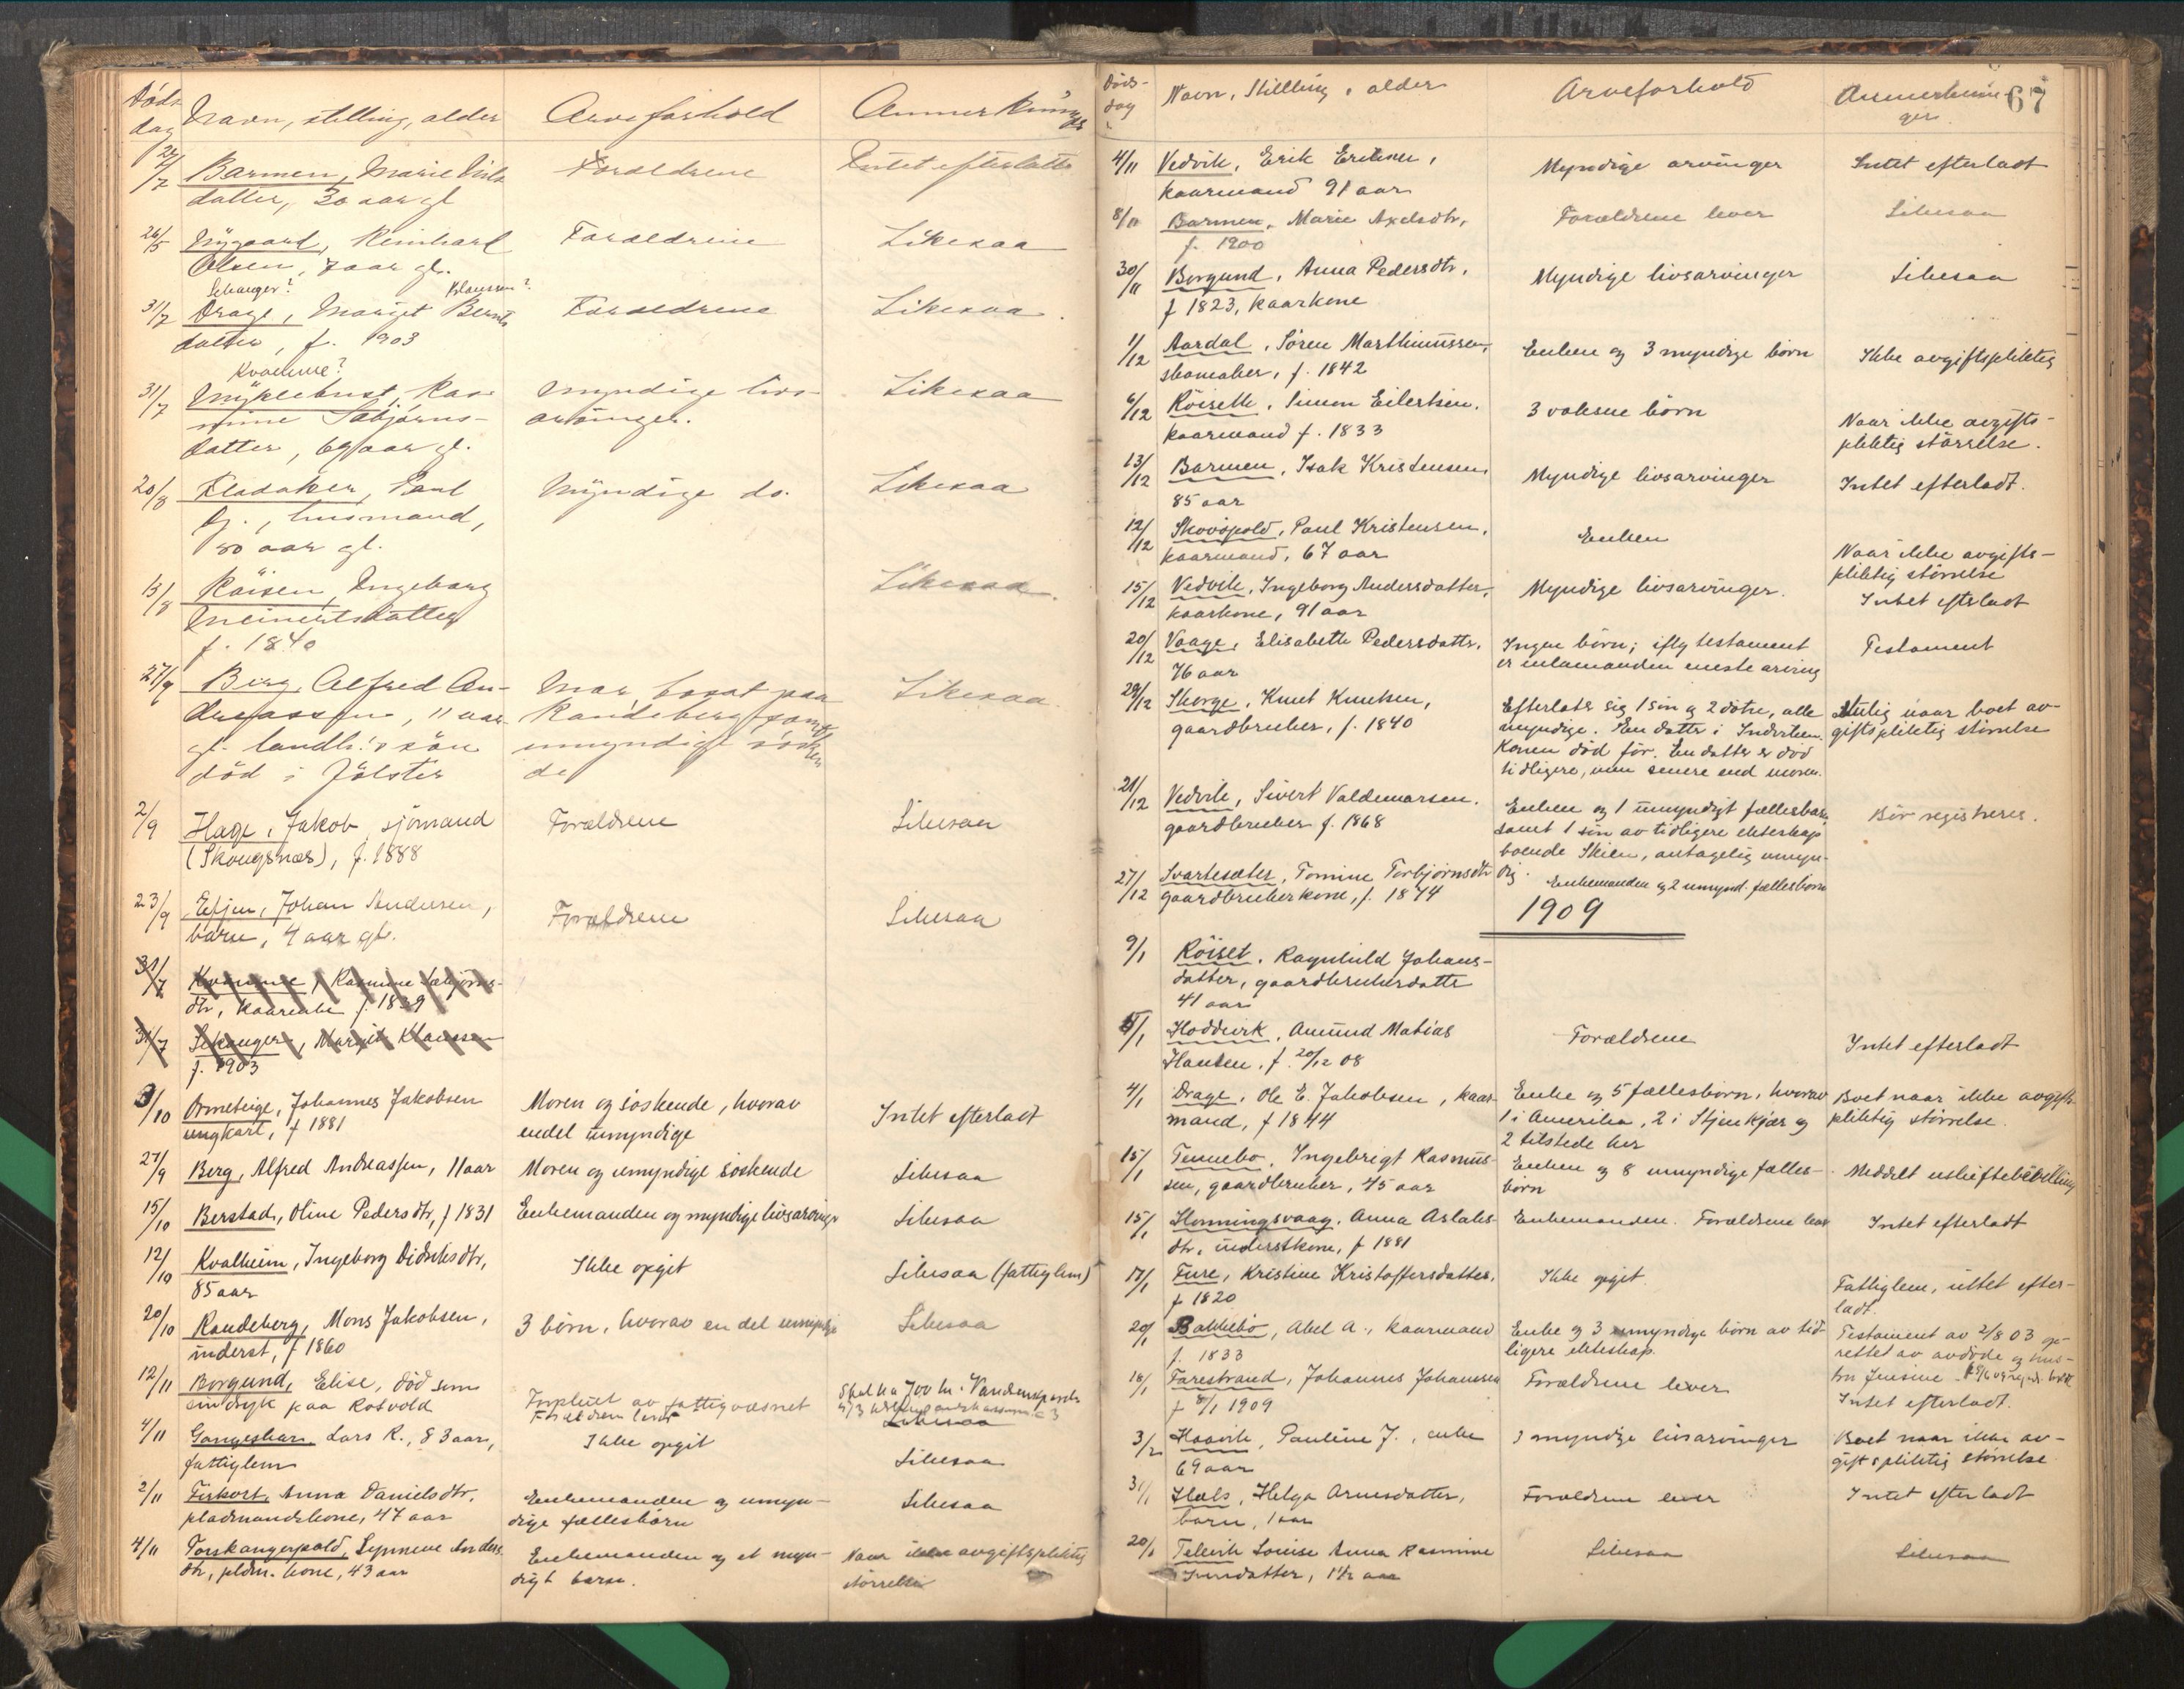 Døds
dag
Navn, stilling, alder
Arveforhold
Anmerkninger
27/7 Barmen, Marie Nils
datter, 30 aar gl
Foreldrene
Intet efterlatt
26/5 Nygaard, Reinhart
Olsen, 7 aar gl.
Foreldrene
Likesaa
Sehanger? Klaussen?
31/7 Drage, Margit Bernts
datter, f. 1903
Foreldrene
Likesaa.
Kvamme?
31/7 Myklebust, Ras
mine Sabjørns-
datter, 69 aar gl.
Myndige livs-
arvinger.
Likesaa
20/8 Fladaker, Paul
husmand,
80 aar gl.
Myndige do.
Likesaa
13/8 Røisen, Ingeborg
Meinertsdatter
f. 1840
Likesaa.
27/9 Berg, Alfred An-
dreassen, 11 aar
gl. landh. søn
død i Jølster
Mor, bosat paa
Randeberg samt
umyndige søsken
de
Likesaa.
2/9 Hage, Jakob, sjømand
(Skougsnæs), f. 1888
Forældrene
Likesaa
23/9 Eljen, Johan Andersen,
barn, 4 aar gl.
Forældrene
Likesaa
31/7 Kvamme, Rasmine Sabjørns-
dtr, kaarenke f. 1839
31/7 Sehanger, Margit Klaussen
f. 1903
3/10 Ormeteige, Johannes Jakobsen
ungkarl, f 1881
Moren og søskende, hvorav
endel umyndige
Intet efterladt
27/9 Berg, Alfred Andreassen, 11 aar
Moren og umyndige søskende
Likesaa
15/10 Berstad, Oline Pedersdtr, f 1831
Enkemanden og myndige livsarvinger
Likesaa
12/10 Kvalheim, Ingeborg Didriksdtr,
85 aar
Ikke opgit
Likesaa (fattiglem)
20/10 Randeberg, Mons Jakobsen,
inderst, f 1860
3 børn, hvorav en del umyndige
Likesaa
12/11 Borgund, Elise, død som
sindsyk paa Rotvold
Forpleiet av fattigvæsnet
Forældrene lever
Skal ha 700 kr.
Likesaa
4/11 Gangeskar, Lars R., 83 aar,
fattiglem
Ikke opgit
Likesaa
2/11 Fiskort, Anna Danielsdtr,
pladsmandskone, 47 aar
Enkemanden og umyn-
dige fællesbørn
Likesaa
4/11 Torskangerpold, Synneve Anders
dtr, pldm. kone, 43 aar
Enkemanden og et myn-
digt barn.
Naar ikke avgiftspliktig
størrelse
Døds-
dag
Navn, Stilling, alder
Arveforhold
Anmerknin-
ger
67
4/11 Vedvik, Erik Eriksen,
kaarmand 91 aar
Myndige arvinger
Intet efterladt
8/11 Barmen, Marie Axelsdtr,
f. 1900
Forældrene lever
Likesaa
30/11 Borgund, Anna Pedersdtr,
f 1823, kaarkone
Myndige livsarvinger
Likesaa
1/12 Aardal, Søren Marthinussen,
skomaker, f. 1842
Enken og 3 myndige børn
Ikke avgiftspliktig
6/12 Røisetb, Simon Eilertsen,
kaarmand f. 1833
3 voksne børn
Naar ikke avgifts-
pliktig størrelse.
13/12 Barmen, Isak Kristensen
85 aar
Myndige livsarvinger
Intet efterladt.
12/12 Skovspold, Paul Kristensen,
kaarmand, 67 aar
Enken
Naar ikke avgifts-
pliktig størrelse
15/12 Vedvik, Ingeborg Andersdatter,
kaarkone, 91 aar
Myndige livsarvinger.
Intet efterladt
20/12 Vaage, Elisabeth Pedersdatter,
76 aar
Ingen børn; iflg testament
er enkemanden eneste arving
Testament
29/12 Skorge, Knut Knutsen,
gaardbruker, f. 1840
Efterlater sig 1 søn og 2 døtre, alle
myndige. En datter i Inderøen.
Konen død før. En datter er død
tidligere, men senere end moren.
Mulig naar boet av-
giftspliktig størrelse
21/12 Vedvik, Sivert Valdemarsen.
gaardbruker f. 1868
Enken og 1 umyndigt fællesbarn
samt 1 søn av tidligere ekteskap
boende Skien, antagelig umyn-
dig.
Bør registreres.
27/12 Svartesæter, Tomine Torbjørnsdtr
gaardbrukerkone, f. 1874
Enkemanden og 2 umynd. fællesbørn
1909
9/1 Røiset, Ragnhild Johans-
datter, gaardbrukersdatter
41 aar
5/1 Hoddevik, Amund Matias
Hansen, f. 20/12 08
Forældrene
Intet efterladt
4/1 Drage, Ole E. Jakobsen, kaar-
mand, f 1844
Enke og 5 fællesbørn, hvorav
1 i Amerika, 2 i Stjenkjær og
2 tilstede her
Boet naar ikke avgifts
pliktig størrelse.
15/1 Tennebø, Ingebrigt Rasmus-
sen, gaardbruker, 45 aar
Enken og 8 umyndige fælles-
børn
Meddelt uskiftebevilling
15/1 Honningsvaag, Anna Aslaks
dtr, inderstkone, f 1881
Enkemanden. Forældrene lever
Intet efterladt
17/1 Fure, Kristine Kristoffersdatter,
f 1820
Ikke opgit.
Fattiglem, intet efter-
ladt.
20/1 Bakkebø, Abel A., kaarmand
f. 1833
Enke og 3 myndige børn av tid-
ligere ekteskap.
Testament av 2/8 03 op-
rettet av avdøde og hus-
tru Jensine
16/1 Farestrand, Johannes Johanssen
f 8/1 1909
Forældrene lever
Intet efterladt.
3/2 Haavik, Pauline J., enke
69 aar
3 myndige livsarvinger
Boet naar ikke av-
giftspliktig størrelse
31/1 Hals, Helga Arnesdatter,
barn, 1 aar
Forældrene lever
Intet efterladt
20/1 Televik Louise Anna Rasmine
Jensdatter, 1½ aar
Likesaa
Likesaa